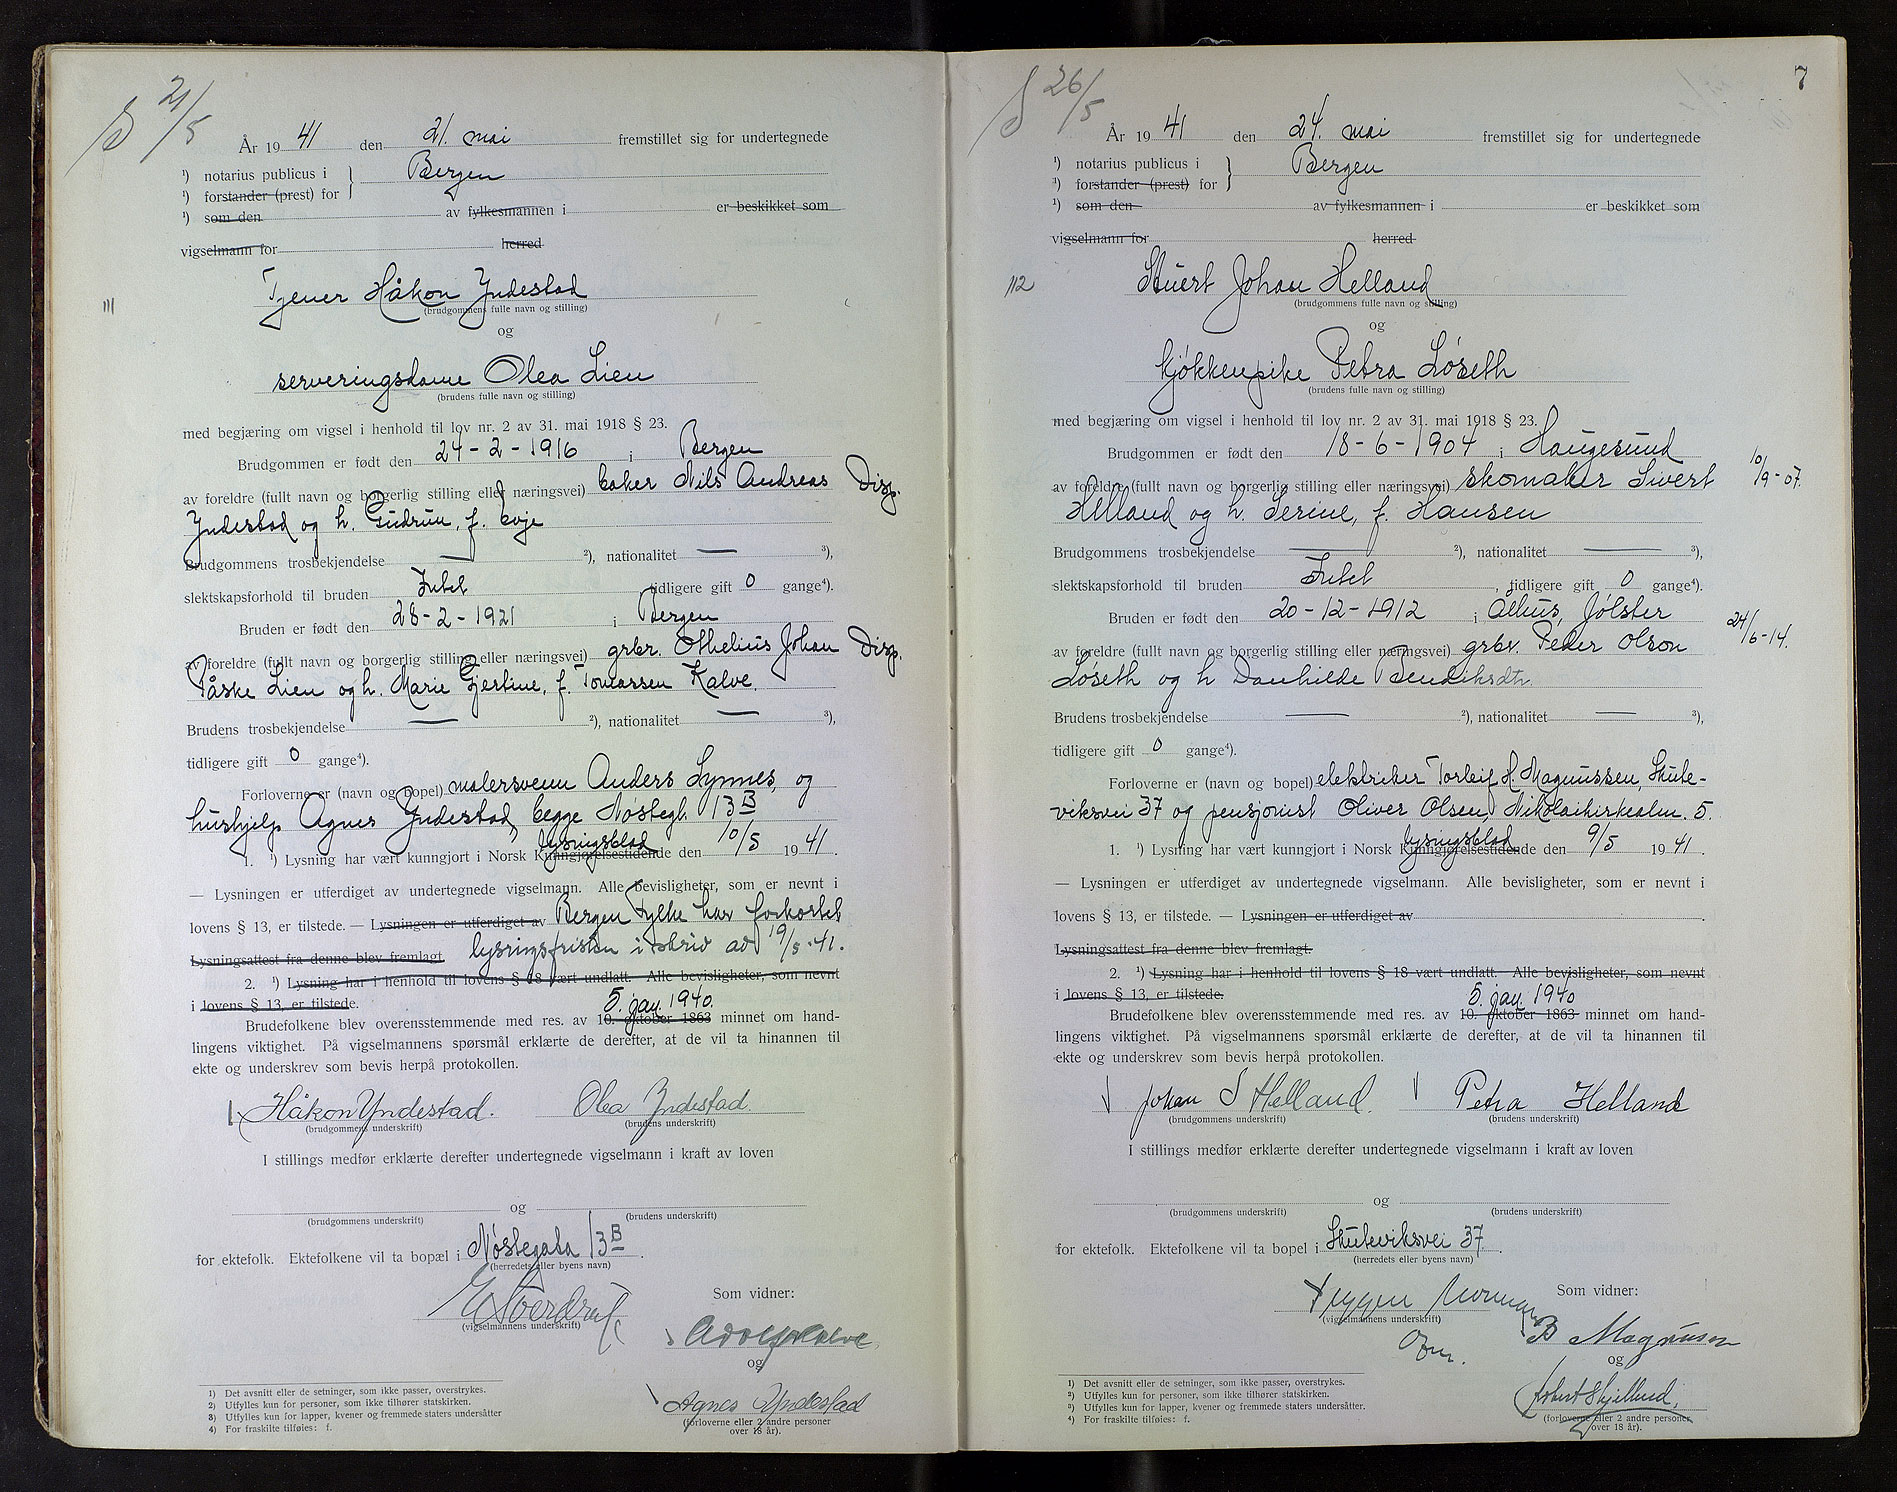 S 21/5
År 19 41 den 21. mai fremstillet sig for undertegnede
¹) notarius publicus i Bergen
¹) forstander (prest) for
¹) som den av fylkesmannen i er beskikket som
vigselmann for herred
111
Tjener Håkon Yndestad
(brudgommens fulle navn og stilling)
og
serveringsdame Olea Lien
(brudens fulle navn og stilling)
med begjæring om vigsel i henhold til lov nr. 2 av 31. mai 1918 § 23.
Brudgommen er født den 24-2-1916 i Bergen
av foreldre (fullt navn og borgerlig stilling eller næringsvei) baker Nils Andreas Disp.
Yndestad og h. Gudrun, f. Eoje
Brudgommens trosbekjendelse — ²), nationalitet — ³),
slektskapsforhold til bruden Intet tidligere gift 0 gange⁴).
Bruden er født den 28-2-1921 i Bergen
av foreldre (fullt navn og borgerlig stilling eller næringsvei) grbr. Othelius Johan Disp.
Påske Lien og h. Marie Gjertine, f. Tomassen Kalve.
Brudens trosbekjendelse — ²), nationalitet — ³),
tidligere gift 0 gange⁴).
Forloverne er (navn og bopel) malersvenn Anders Lynnes, og
hushjelp Agnes Yndestad, begge Nøstegt. 13 B
lysingsblad
1. ¹) Lysning har vært kunngjort i Norsk Kunngjørelsestidende den 10/5 19 41.
— Lysningen er utferdiget av undertegnede vigselmann. Alle bevisligheter, som er nevnt i
lovens § 13, er tilstede. — Lysningen er utferdiget av Bergen Fylke har forkortet
Lysningsattest fra denne blev fremlagt. lysingsfristen i skriv av 19/5-41.
2. ¹) Lysning har i henhold til lovens § 18 vært undlatt. Alle bevisligheter, som nevnt
i lovens § 13, er tilstede. 5. jan. 1940.
Brudefolkene blev overensstemmende med res. av 10. oktober 1863 minnet om hand-
lingens viktighet. På vigselmannens spørsmål erklærte de derefter, at de vil ta hinannen til
ekte og underskrev som bevis herpå protokollen.
Håkon Yndestad. Olea Yndestad.
(brudgommens underskrift) (brudens underskrift)
I stillings medfør erklærte derefter undertegnede vigselmann i kraft av loven
og
(brudgommens underskrift) (brudens underskrift)
for ektefolk. Ektefolkene vil ta bopæl i Nøstegata 13 B.
(herredets eller byens navn)
Som vidner:
(vigselmannens underskrift)
Adolf Kalve
og
Agnes Yndestad
(forloverne eller 2 andre personer
over 18 år).
1) Det avsnitt eller de setninger, som ikke passer, overstrykes.
2) Utfylles kun for personer, som ikke tilhører statskirken.
3) Utfylles kun for lapper, kvener og fremmede staters undersåtter
4) For fraskilte tilføies: f.
7
S 26/5
År 19 41 den 24. mai fremstillet sig for undertegnede
¹) notarius publicus i Bergen
¹) forstander (prest) for
¹) som den av fylkesmannen i er beskikket som
vigselmann for herred
112
Stuert Johan Helland
(brudgommens fulle navn og stilling)
og
kjøkkenpike Petra Løseth
(brudens fulle navn og stilling)
med begjæring om vigsel i henhold til lov nr. 2 av 31. mai 1918 § 23.
Brudgommen er født den 18-6-1904 i Haugesund
av foreldre (fullt navn og borgerlig stilling eller næringsvei) skomaker Sivert 10/9-07.
Helland og h. Serine, f. Hansen
Brudgommens trosbekjendelse — ²), nationalitet — ³),
slektskapsforhold til bruden Intet, tidligere gift 0 gange⁴).
Bruden er født den 20-12-1912 i Ålhus, Jølster
av foreldre (fullt navn og borgerlig stilling eller næringsvei) grbr. Peder Olson 24/6-14.
Løseth og h Danhilde Bendiksdtr.
Brudens trosbekjendelse — ²), nationalitet — ³),
tidligere gift 0 gange⁴).
Forloverne er (navn og bopel) elektriker Torleif H. Magnussen, Skute-
viksvei 37 og pensjonist Oliver Olsen, Nikolaikirkealm. 5.
lysingsblad
1. ¹) Lysning har vært kunngjort i Norsk Kunngjørelsestidende den 9/5 19 41.
— Lysningen er utferdiget av undertegnede vigselmann. Alle bevisligheter, som er nevnt i
lovens § 13, er tilstede. — Lysningen er utferdiget av
Lysningsattest fra denne blev fremlagt.
2. ¹) Lysning har i henhold til lovens § 18 vært undlatt. Alle bevisligheter, som nevnt
i lovens § 13, er tilstede. 5. jan. 1940
Brudefolkene blev overensstemmende med res. av 10. oktober 1863 minnet om hand-
lingens viktighet. På vigselmannens spørsmål erklærte de derefter, at de vil ta hinannen til
ekte og underskrev som bevis herpå protokollen.
Johan S Helland. Petra Helland
(brudgommens underskrift) (brudens underskrift)
I stillings medfør erklærte derefter undertegnede vigselmann i kraft av loven
og
(brudgommens underskrift) (brudens underskrift)
for ektefolk. Ektefolkene vil ta bopel i Skuteviksvei 37.
(herredets eller byens navn)
Som vidner:
(vigselmannens underskrift)
B Magnussen
og
(forloverne eller 2 andre personer
over 18 år).
¹) Det avsnitt eller de setninger, som ikke passer, overstrykes.
²) Utfylles kun for personer, som ikke tilhører statskirken.
³) Utfylles kun for lapper, kvener og fremmede staters undersåtter.
⁴) For fraskilte tilføies: f.